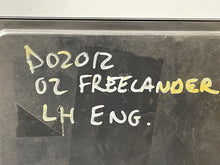 D02012
02 FREELANDER
LH ENG.